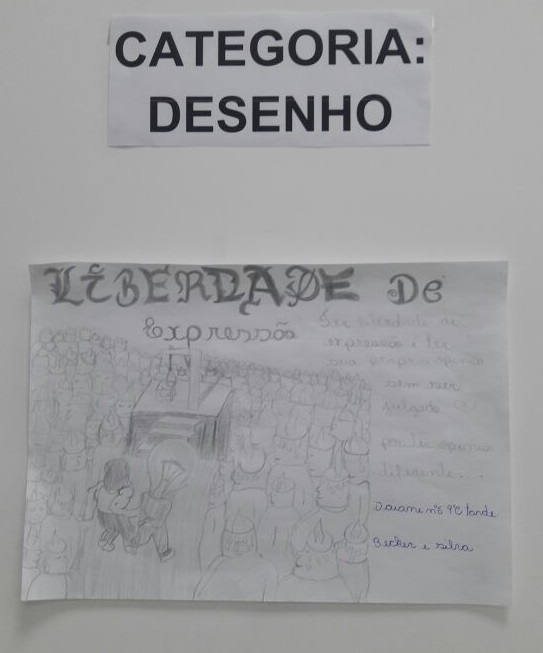 CATEGORIA:
DESENHO
LIBERDADE De
Expressão
Ter liberdade de
expressão é ter
sua propria opinião
sem ser
julgado
por ter opinião
diferente...
Daiame nº6 9ºC tarde
Becker e silva